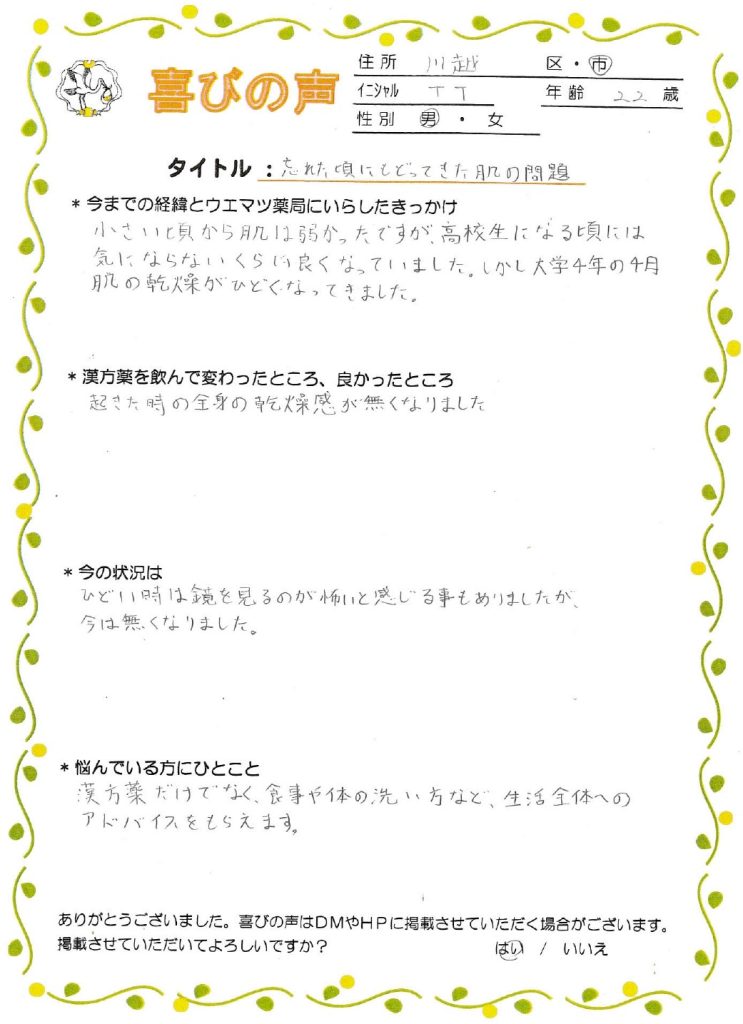 喜びの声
住所 川越 区・市
イニシャル TT 年齢 22 歳
性別 男 ・ 女
タイトル : 忘れた頃にもどってきた肌の問題
* 今までの経緯とウエマツ薬局にいらしたきっかけ
小さい頃から肌は弱かったですが、高校生になる頃には
気にならないくらい良くなっていました。しかし大学4年の4月
肌の乾燥がひどくなってきました。
* 漢方薬を飲んで変わったところ、良かったところ
起きた時の全身の乾燥感が無くなりました
* 今の状況は
ひどい時は鏡を見るのが怖いと感じる事もありましたが、
今は無くなりました。
* 悩んでいる方にひとこと
漢方薬だけでなく、食事や体の洗い方など、生活全体への
アドバイスをもらえます。
ありがとうございました。喜びの声はDMやHPに掲載させていただく場合がございます。
掲載させていただいてよろしいですか？ はい / いいえ